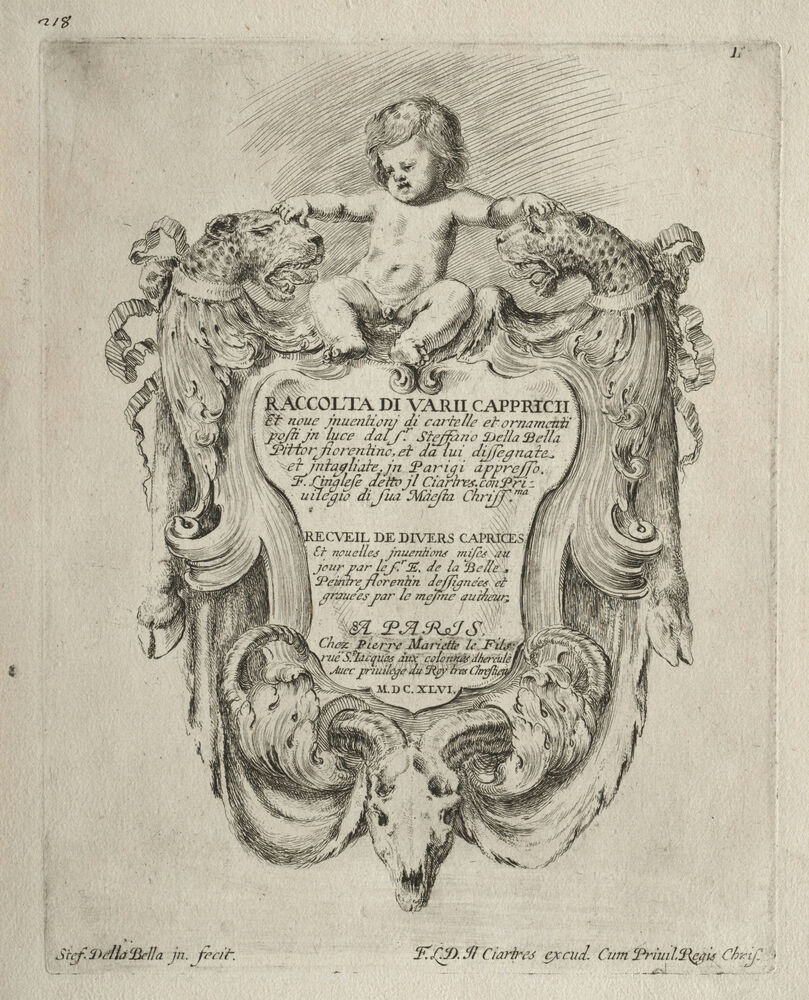 218
1.
RACCOLTA DI VARII CAPPRICII
Et noue jnuentionj di cartelle et ornamenti
posti jn luce dal s.r Steffano Della Bella
Pittor fiorentino, et da lui dissegnate
et jntagliate, jn Parigi appresso.
F. Linglese detto jl Ciartres, con Pri-
uilegio di sua Maesta Chriss.ma
RECVEIL DE DIVERS CAPRICES
Et nouelles jnuentions mises au
jour par le s.r E. de la Belle.
Peintre florentin dessignées et
grauées par le mesme autheur.
A PARIS.
Chez Pierre Mariette le Fils
rue S.t Iacques aux colonnes dhercule
Auec priuilege du Roy tres Chrestien
M.DC.XLVI.
Stef. Della Bella jn. fecit.
F.L.D. Il Ciartres excud. Cum Priuil. Regis Chris.